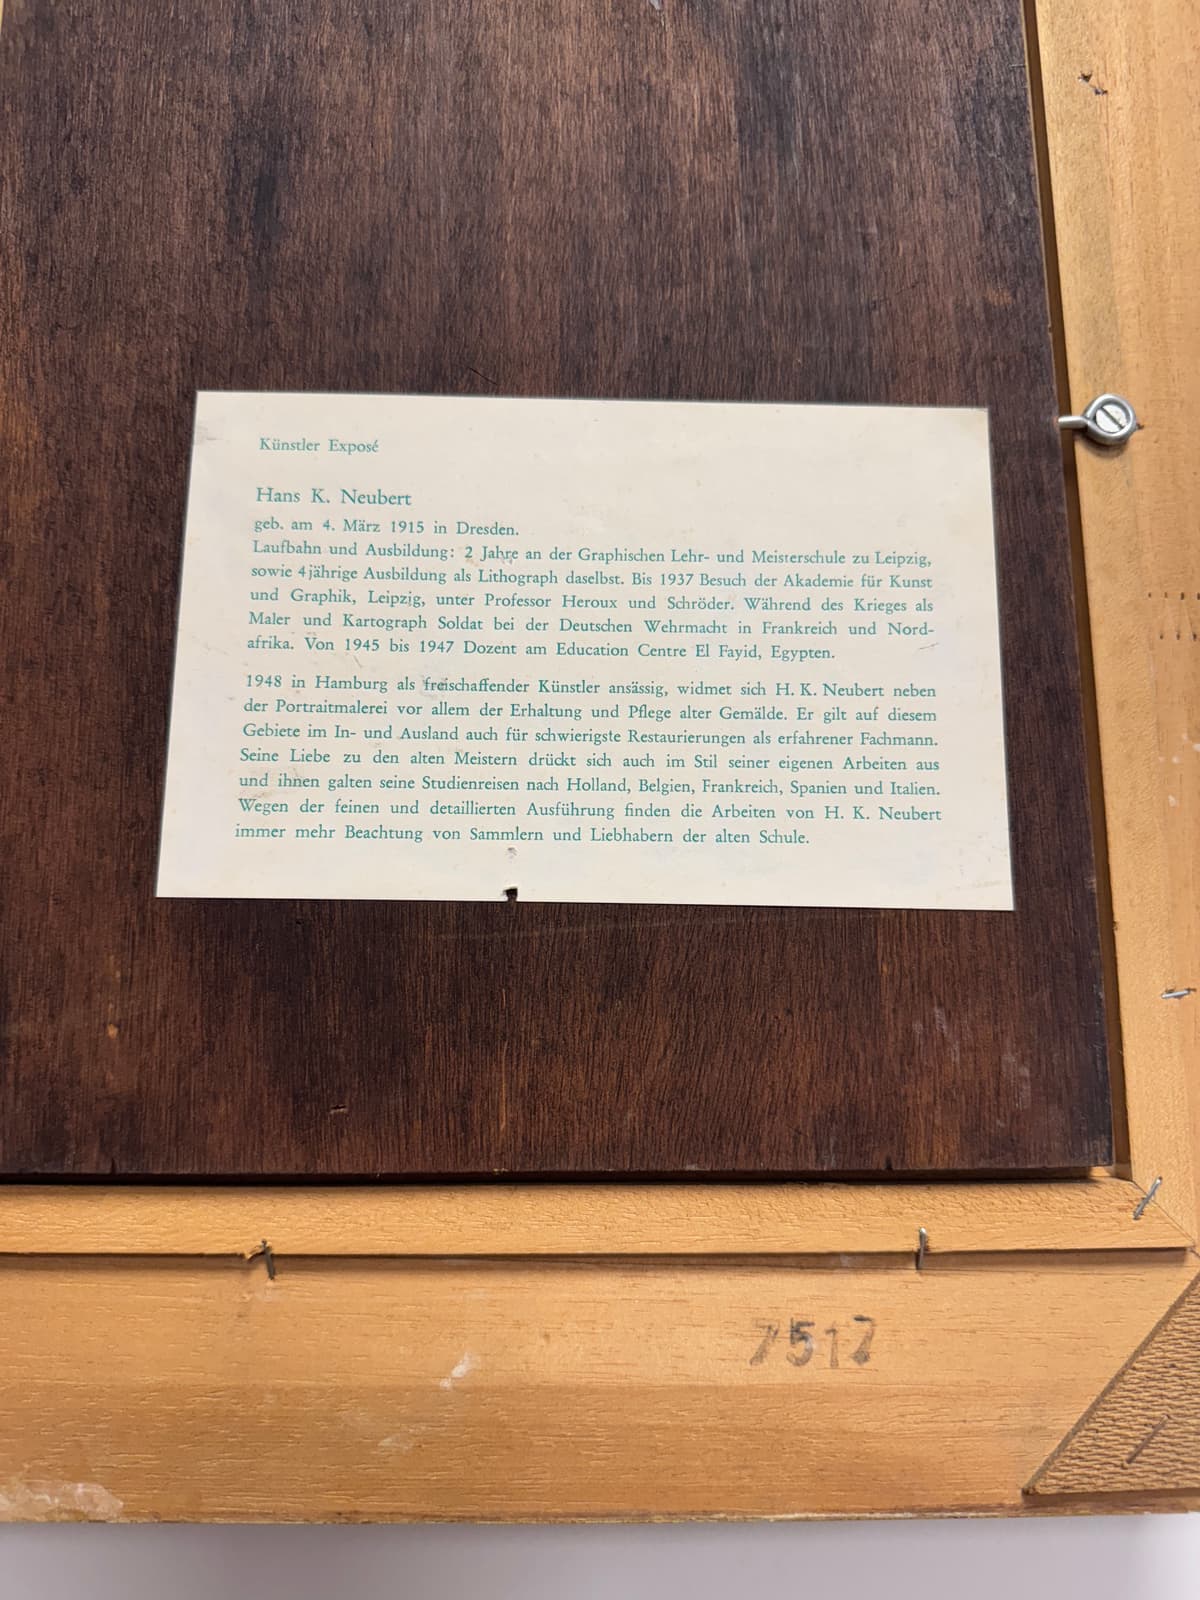 Künstler Exposé
Hans K. Neubert
geb. am 4. März 1915 in Dresden.
Laufbahn und Ausbildung: 2 Jahre an der Graphischen Lehr- und Meisterschule zu Leipzig,
sowie 4jährige Ausbildung als Lithograph daselbst. Bis 1937 Besuch der Akademie für Kunst
und Graphik, Leipzig, unter Professor Heroux und Schröder. Während des Krieges als
Maler und Kartograph Soldat bei der Deutschen Wehrmacht in Frankreich und Nord-
afrika. Von 1945 bis 1947 Dozent am Education Centre El Fayid, Egypten.
1948 in Hamburg als freischaffender Künstler ansässig, widmet sich H. K. Neubert neben
der Portraitmalerei vor allem der Erhaltung und Pflege alter Gemälde. Er gilt auf diesem
Gebiete im In- und Ausland auch für schwierigste Restaurierungen als erfahrener Fachmann.
Seine Liebe zu den alten Meistern drückt sich auch im Stil seiner eigenen Arbeiten aus
und ihnen galten seine Studienreisen nach Holland, Belgien, Frankreich, Spanien und Italien.
Wegen der feinen und detaillierten Ausführung finden die Arbeiten von H. K. Neubert
immer mehr Beachtung von Sammlern und Liebhabern der alten Schule.
7517